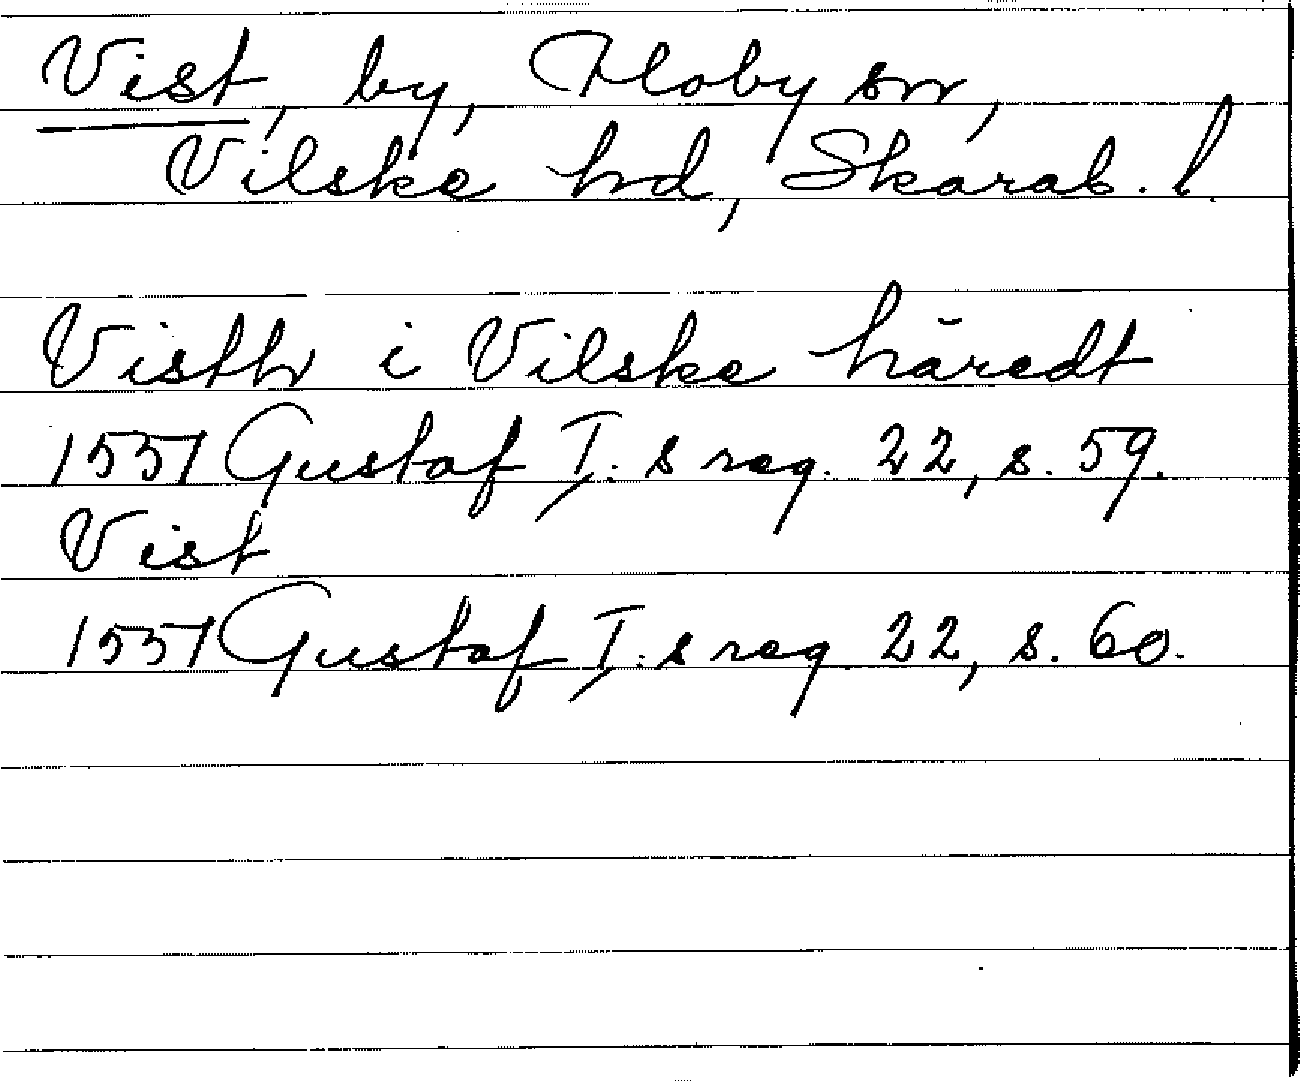 Vist, by, Floby sn,
Vilske hd, Skarab. l.
Visth i Vilske häredt
1551 Gustaf I:s reg. 22, s. 59.
Vist
1551 Gustaf I:s reg 22, s. 60.